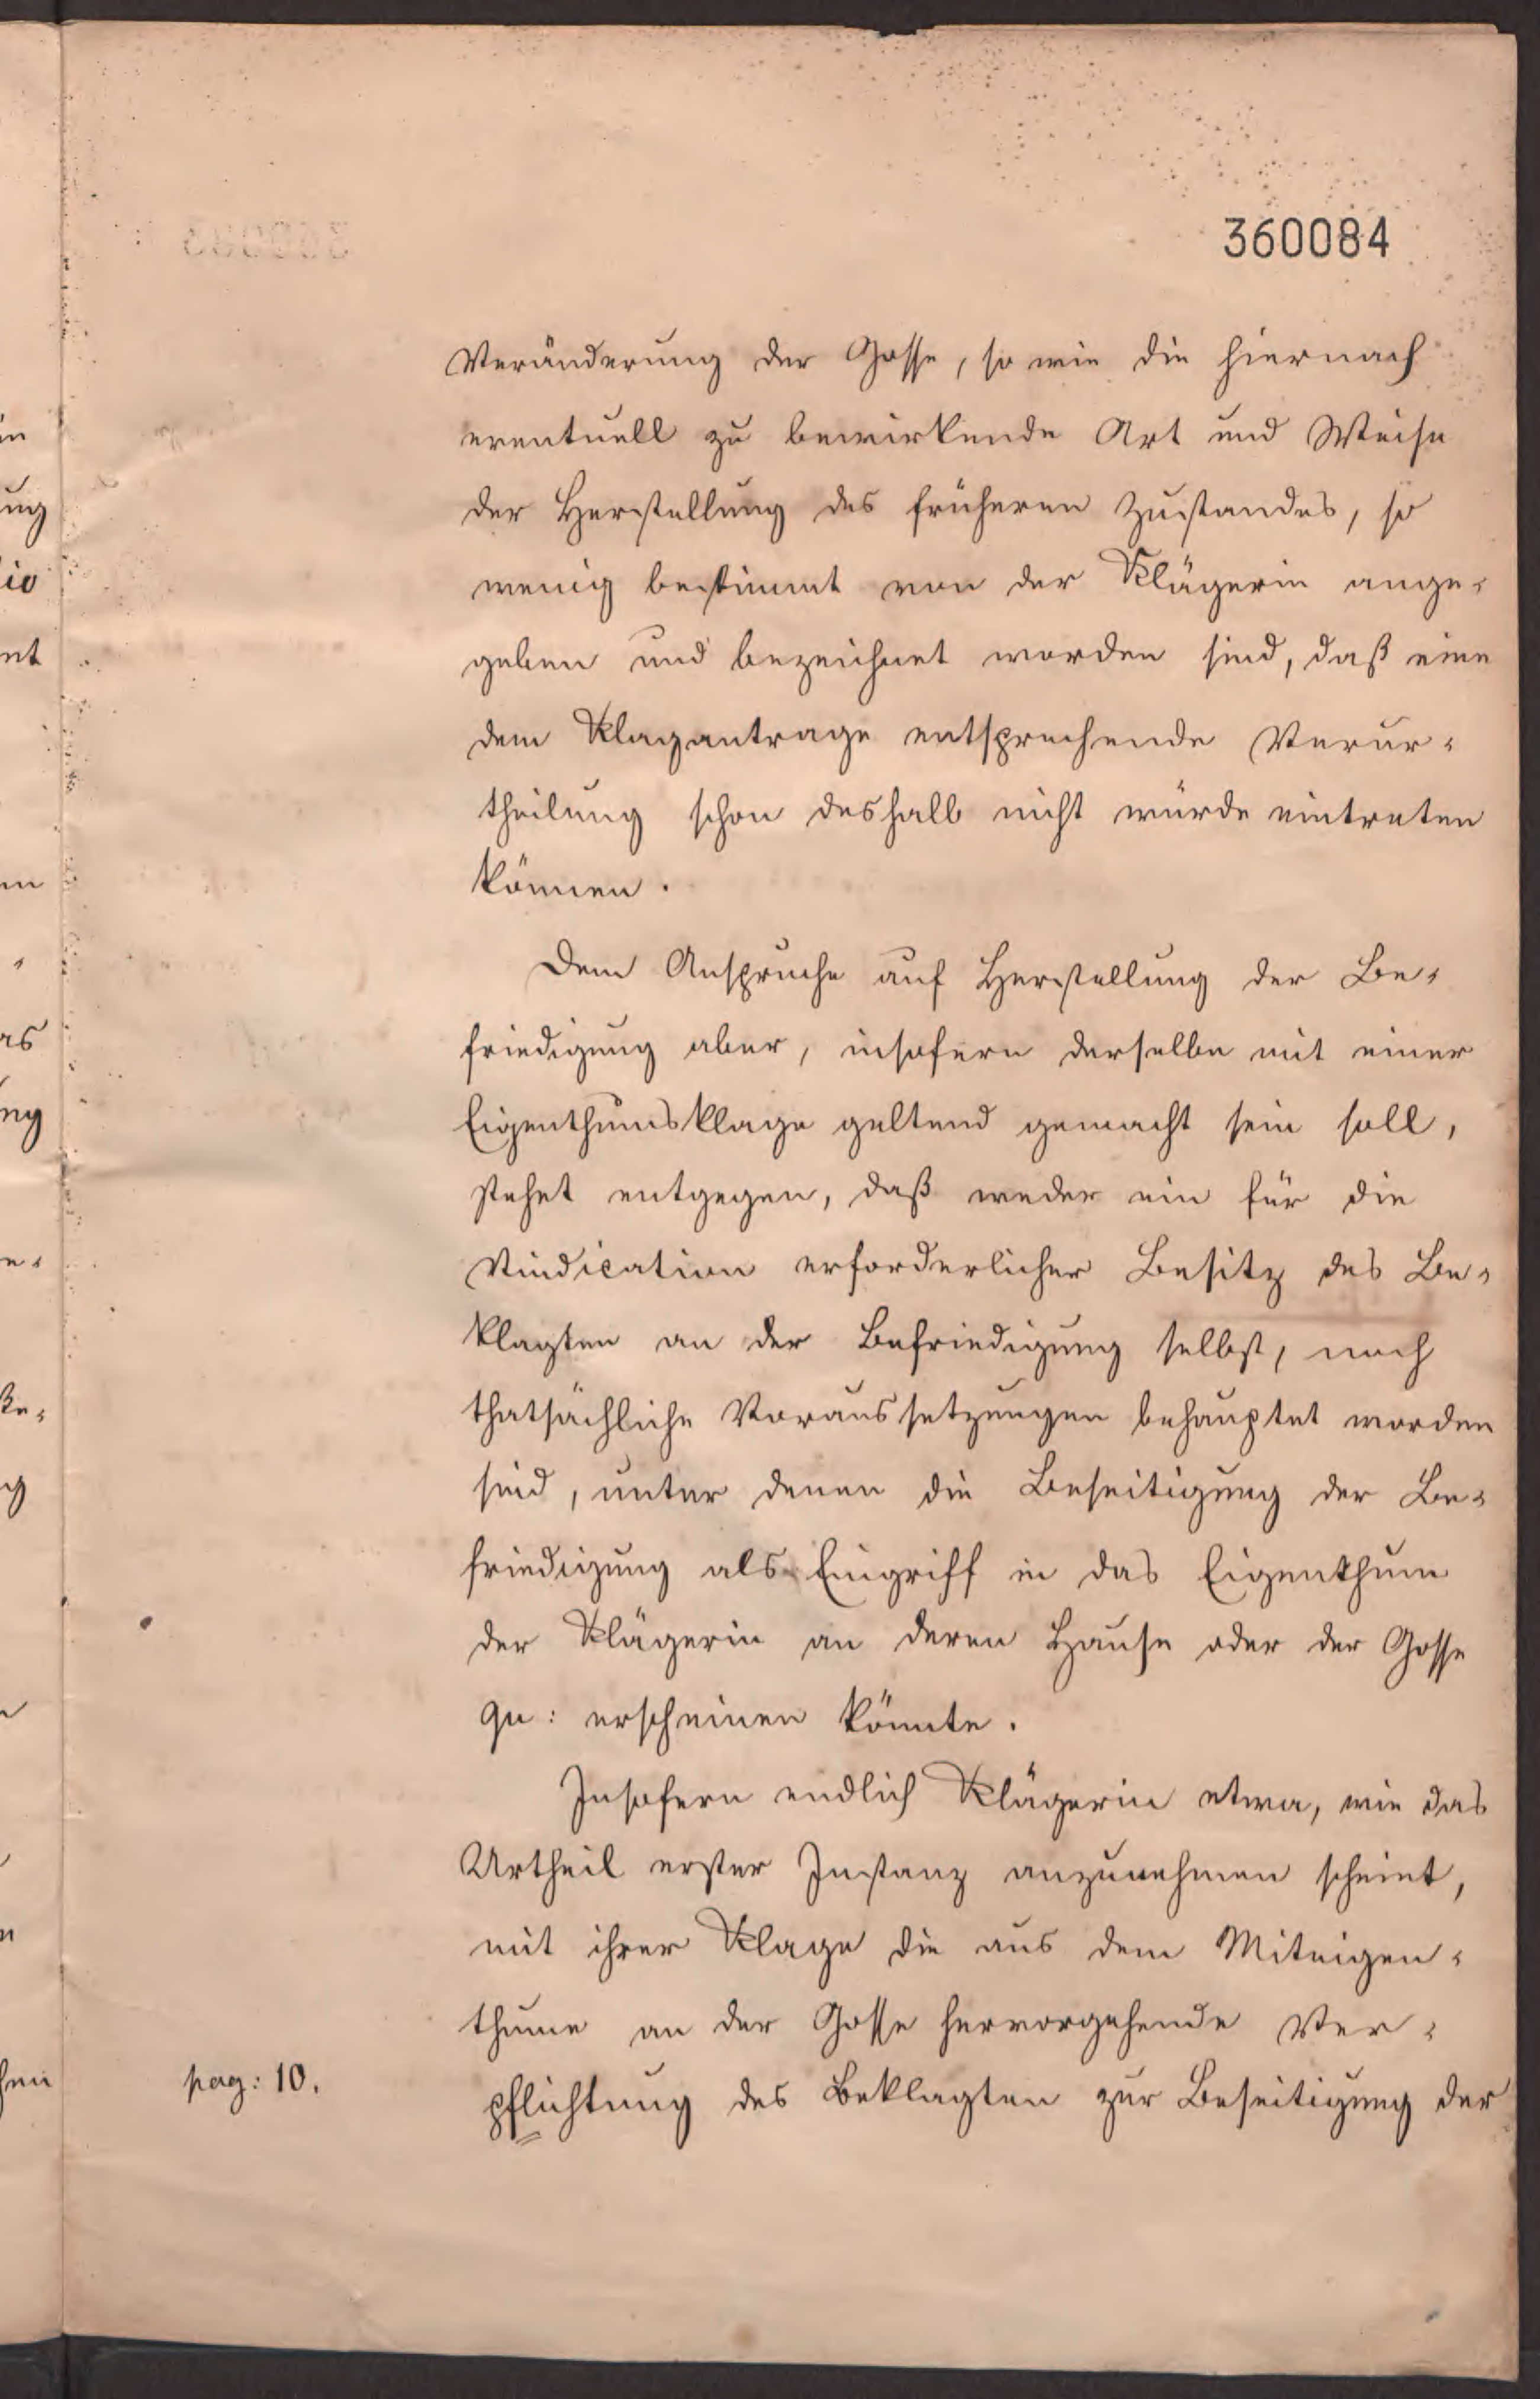 360084
Veränderung der Gosse, so wie die hiernach
eventuell zu bewirkende Art und Weise
der Herstellung des früheren Zustandes, so
wenig bestimmt von der Klägerin ange-
geben und bezeichnet worden sind, daß eine
dem Klagantrage entsprechende Verur-
theilung schon deshalb nicht würde eintreten
können.
Dem Anspruche auf Herstellung der Be-
friedigung aber, insofern derselbe mit einer
Eigenthumsklage geltend gemacht sein soll,
stehet entgegen, daß weder ein für die
Vindication erforderlicher Besitz des Be-
klagten an der Befriedigung selbst, noch
thatsächliche Voraussetzungen behauptet worden
sind, unter denen die Beseitigung der Be-
friedigung als Eingriff in das Eigenthum
der Klägerin an deren Hause oder der Gosse
qu: erscheinen könnte.
Insofern endlich Klägerin etwa, wie das
Urtheil erster Instanz anzunehmen scheint,
mit ihrer Klage die aus dem Miteigen-
thume an der Gosse hervorgehende Ver-
pag: 10.
pflichtung des Beklagten zur Beseitigung der